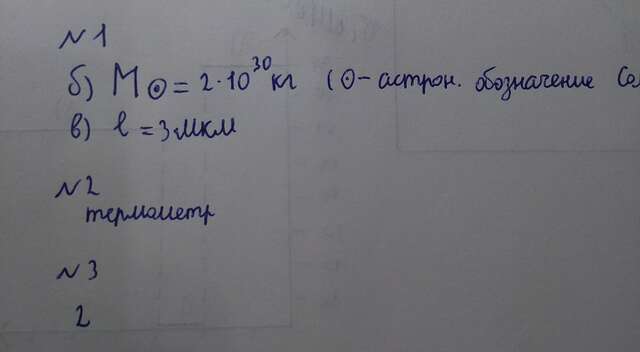 №1
б) M☉ = 2·10³⁰ кг (☉ - астрон. обозначение
в) l = 3 мкм
№2
термометр
№3
2